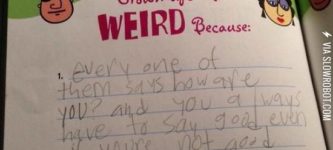 WEIRD Because:
1. every one of
them says how are
you? and you always
have to say good even
if you're not good
VIA SLOWROBOT.COM